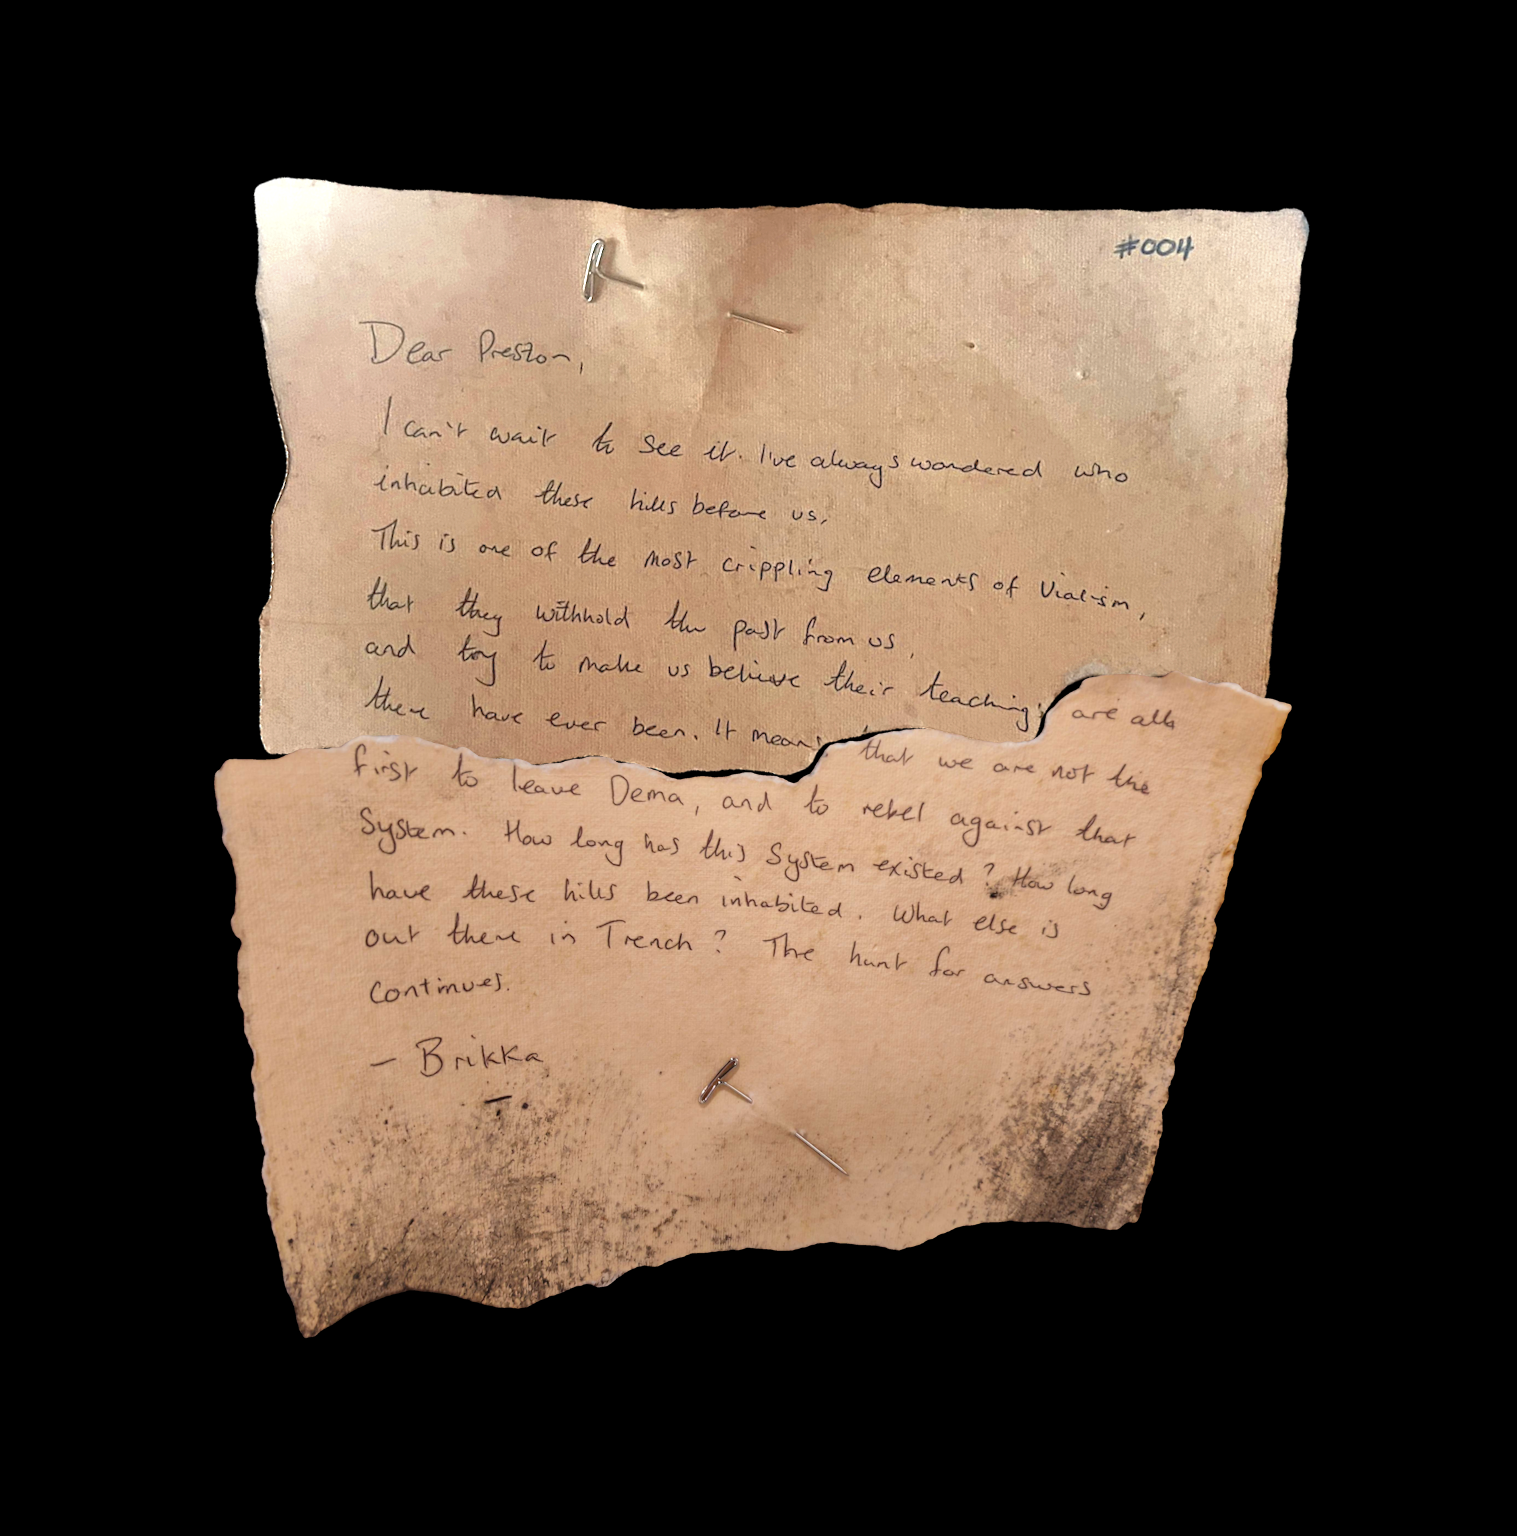 #004
Dear Preston,
I can't wait to see it. I've always wondered who
inhabited these hills before us,
This is one of the most crippling elements of Vialism,
that they withhold the past from us,
and try to make us believe their teachings are all
there have ever been. It means that we are not the
first to leave Dema, and to rebel against that
System. How long has this System existed? How long
have these hills been inhabited. What else is
out there in Trench? The hunt for answers
continues.
— Brikka